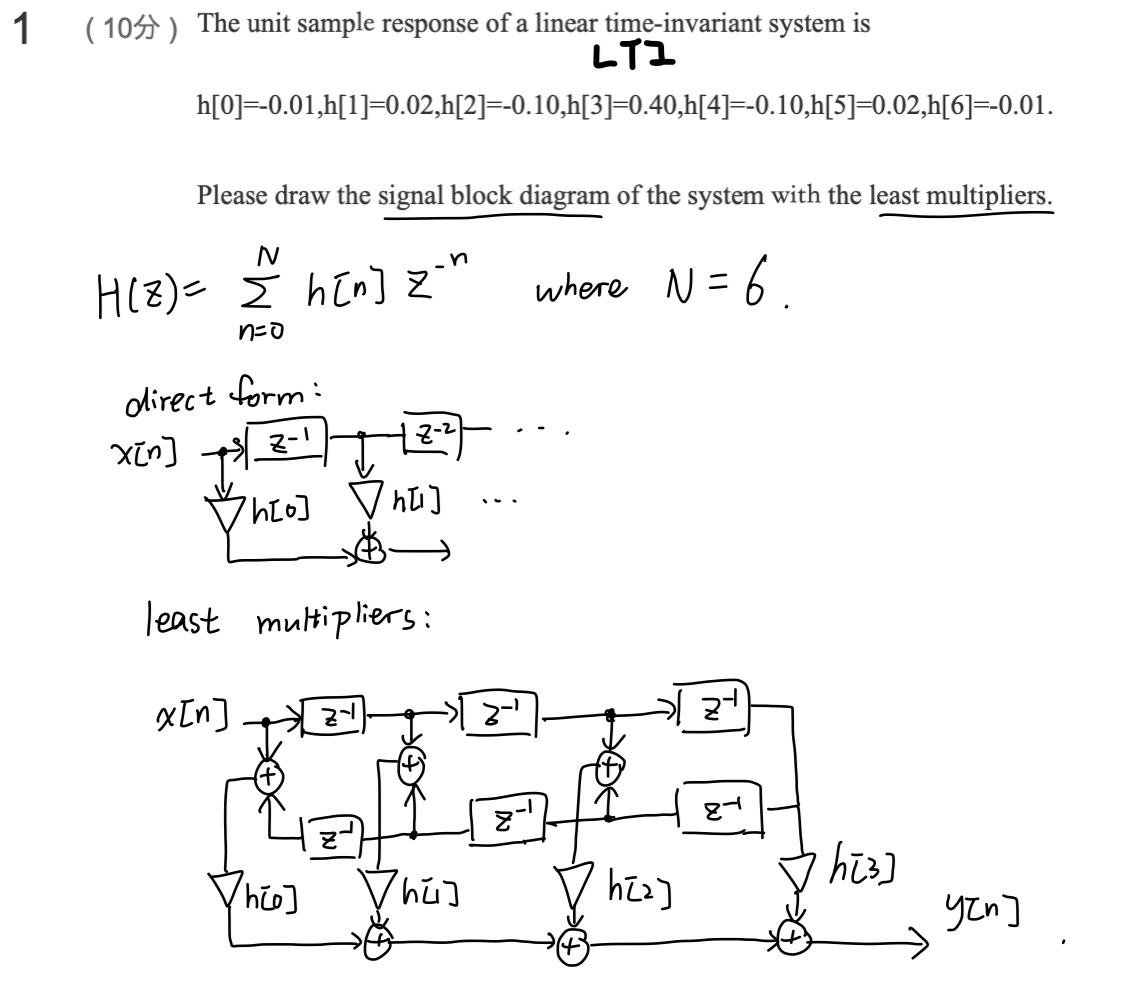 1 (10分) The unit sample response of a linear time-invariant system is
LTI
h[0]=-0.01,h[1]=0.02,h[2]=-0.10,h[3]=0.40,h[4]=-0.10,h[5]=0.02,h[6]=-0.01.
Please draw the signal block diagram of the system with the least multipliers.
H(z)= N∑n=0 h[n] z^-n where N=6.
direct form:
x[n] z^-1 z^-2 ...
h[0] h[1] ...
+
least multipliers:
x[n] z^-1 z^-1 z^-1
+ + +
z^-1 z^-1 z^-1
h[0] h[1] h[2] h[3]
+ + + y[n] .